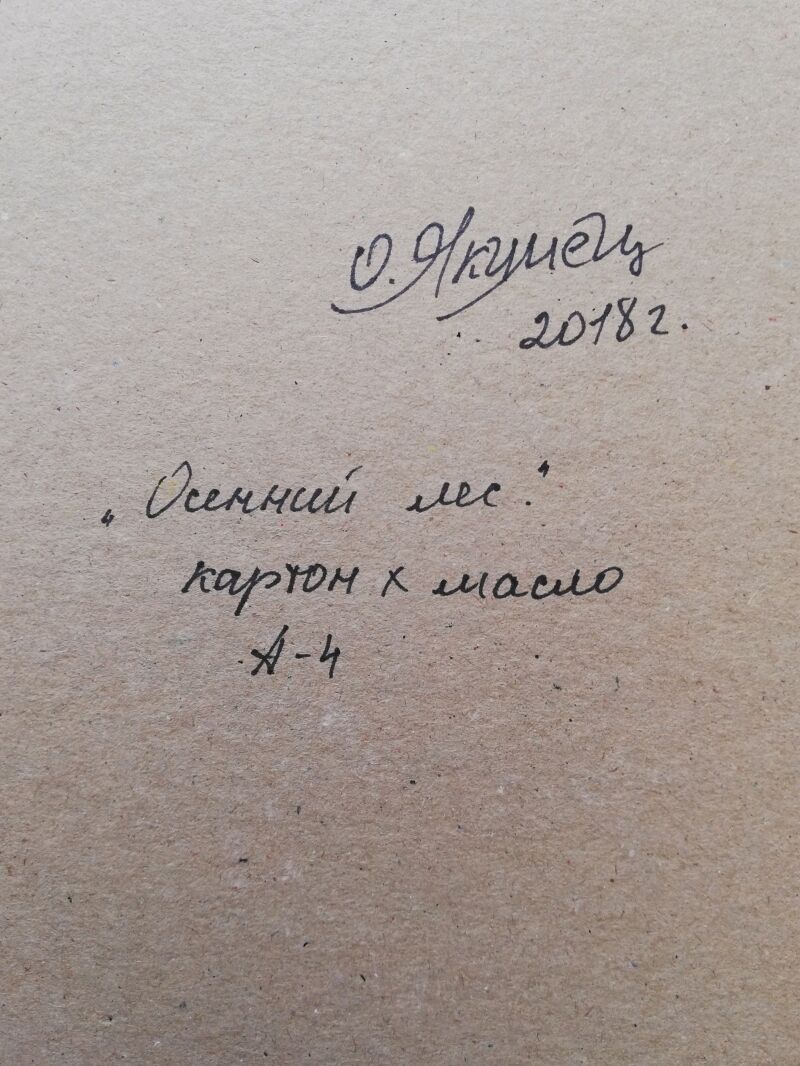 О. Якунец
2018 г.
„Осенний лес."
картон х масло
А-4